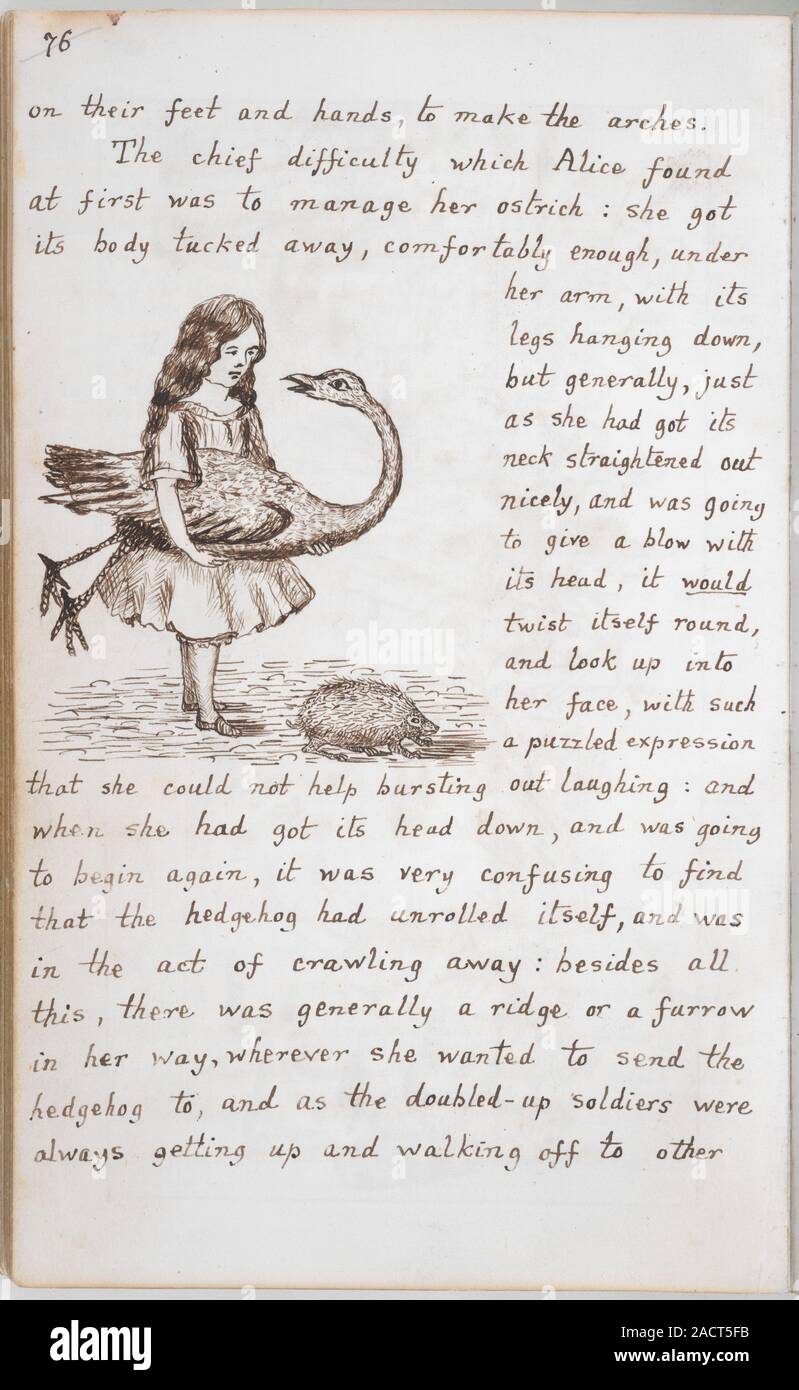 76
on their feet and hands, to make the arches.
The chief difficulty which Alice found
at first was to manage her ostrich : she got
its body tucked away, comfortably enough, under
her arm, with its
legs hanging down,
but generally, just
as she had got its
neck straightened out
nicely, and was going
to give a blow with
its head, it would
twist itself round,
and look up into
her face, with such
a puzzled expression
that she could not help bursting out laughing : and
when she had got its head down, and was going
to begin again, it was very confusing to find
that the hedgehog had unrolled itself, and was
in the act of crawling away : besides all
this, there was generally a ridge or a furrow
in her way, wherever she wanted to send the
hedgehog to, and as the doubled-up soldiers were
always getting up and walking off to other
alamy
alamy
Image ID: 2ACT5FB
www.alamy.com